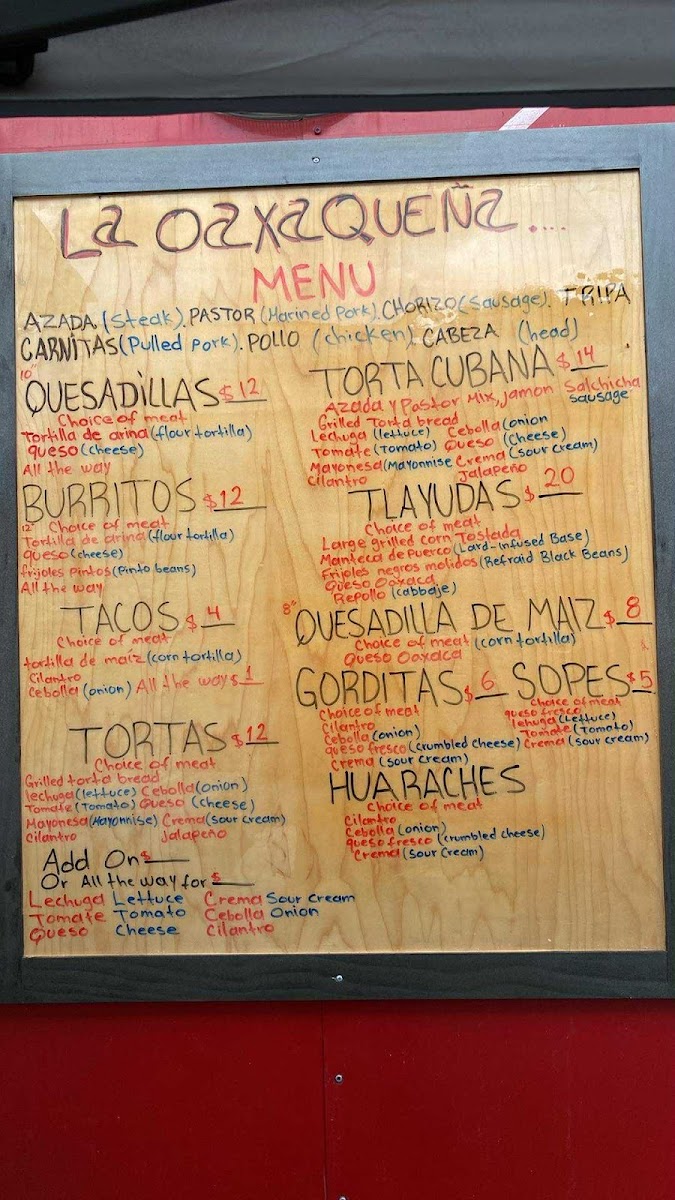 La OaxaQUEÑa....
MENU
AZADA (Steak). PASTOR (Marined Pork). CHORIZO (Sausage). TRIPA
CARNITAS (Pulled Pork). POLLO (chicken) CABEZA (head)
10"
QUESADILLAS $12
Choice of meat
Tortilla de arina (flour tortilla)
queso (cheese)
All the way
BURRITOS $12
12" Choice of meat
Tortilla de arina (flour tortilla)
queso (cheese)
frijoles pintos (pinto beans)
All the way
TACOS $4
Choice of meat
tortilla de maíz (corn tortilla)
Cilantro
Cebolla (onion) All the way $1
TORTAS $12
Choice of meat
Grilled torta bread
lechuga (lettuce) Cebolla (onion)
Tomate (Tomato) Queso (cheese)
Mayonesa (Mayonnise) Crema (sour cream)
Cilantro Jalapeño
Add On $
Or All the way for $
Lechuga Lettuce Crema Sour Cream
Tomate Tomato Cebolla Onion
Queso Cheese Cilantro
TORTA CUBANA $14
Azada y Pastor Mix, Jamon Salchicha
sausage
Grilled Torta bread
Lechuga (lettuce) Cebolla (onion
Tomate (Tomato) Queso (cheese)
Mayonesa (Mayonnise Crema (sour cream)
Cilantro Jalapeño
TLAYUDAS $20
Choice of meat
Large grilled corn Tostada
Manteca de Puerco (Lard-infused Base)
Frijoles negros molidos (Refraid Black Beans)
Queso Oaxaca
Repollo (cabbaje)
8" QUESADILLA DE MAIZ $8
Choice of meat (corn tortilla)
Queso Oaxaca
GORDITAS $6
Choice of meat
Cilantro
Cebolla (onion)
queso fresco (crumbled cheese)
Crema (sour cream)
SOPES $5
Choice of meat
queso fresco
lehuga (Lettuce)
Tomate (Tomato)
Crema (sour cream)
HUARACHES
Choice of meat
Cilantro
Cebolla (onion)
queso fresco (crumbled cheese)
Crema (sour cream)